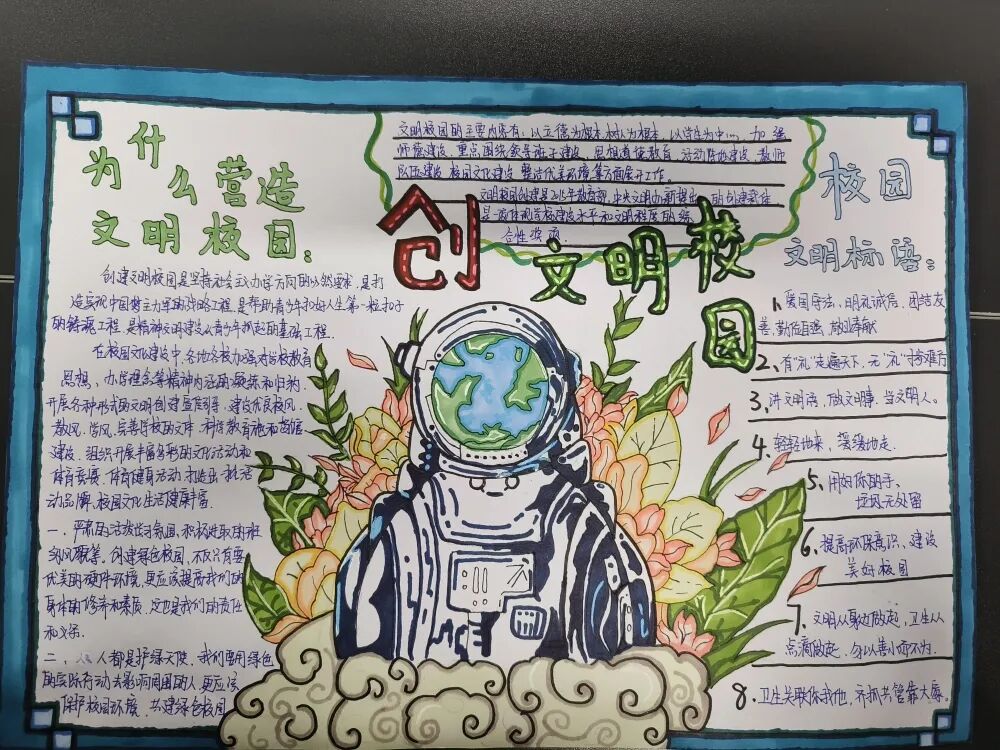 为什么营造
文明校园：
创建文明校园是坚持社会主义办学方向的必然要求，是打
造实现中国梦主力军的战略工程，是帮助青少年扣好人生第一粒扣子
的铸魂工程，是精神文明建设从青少年抓起的基础工程.
在校园文化建设中，各地各校加强对学校教育
思想、办学理念等精神内涵的凝练和归纳.
开展各种形式的文明创建宣传引导，建设优良校风、
教风、学风
建设，组织开展丰富多彩的文化活动和
体育竞赛、体育健身活动，打造出一批活
动品牌，校园文化生活健康丰富.
一、严肃的
创建绿色校园，不仅只有要
优美的硬件环境，更应该提高我们的
身体的修养和素质，这也是我们的责任
和义务.
二、人人都是护绿天使，我们要用绿色
的实际行动去影响周围的人，更应该
保护校园环境，共建绿色校园
文明校园的主要内容有：以立德为根本，树人为根本，以学生为中心，加强
师德建设，重点围绕领导班子建设、思想道德教育、活动阵地建设、教师
队伍建设、校园文化建设、整洁优美环境等方面展开工作。
文明校园创建是2015年教育部、中央文明办新提出的创建载体
是一项体现学校建设水平和文明程度的综
合性奖项
创文明校园
校园
文明标语：
1、爱国守法，明礼诚信，团结友
善，勤俭自强，敬业奉献
2、有"礼"走遍天下，无"礼"寸步难行
3、讲文明语，做文明事，当文明人。
4、轻轻地来，缓缓地走.
5、用好你的手，
垃圾无处留
6、提高环保意识，建设
美好校园
7、文明从身边做起，卫生从
点滴做起，勿以善小而不为.
8、卫生关联你我他，齐抓共管靠大家.